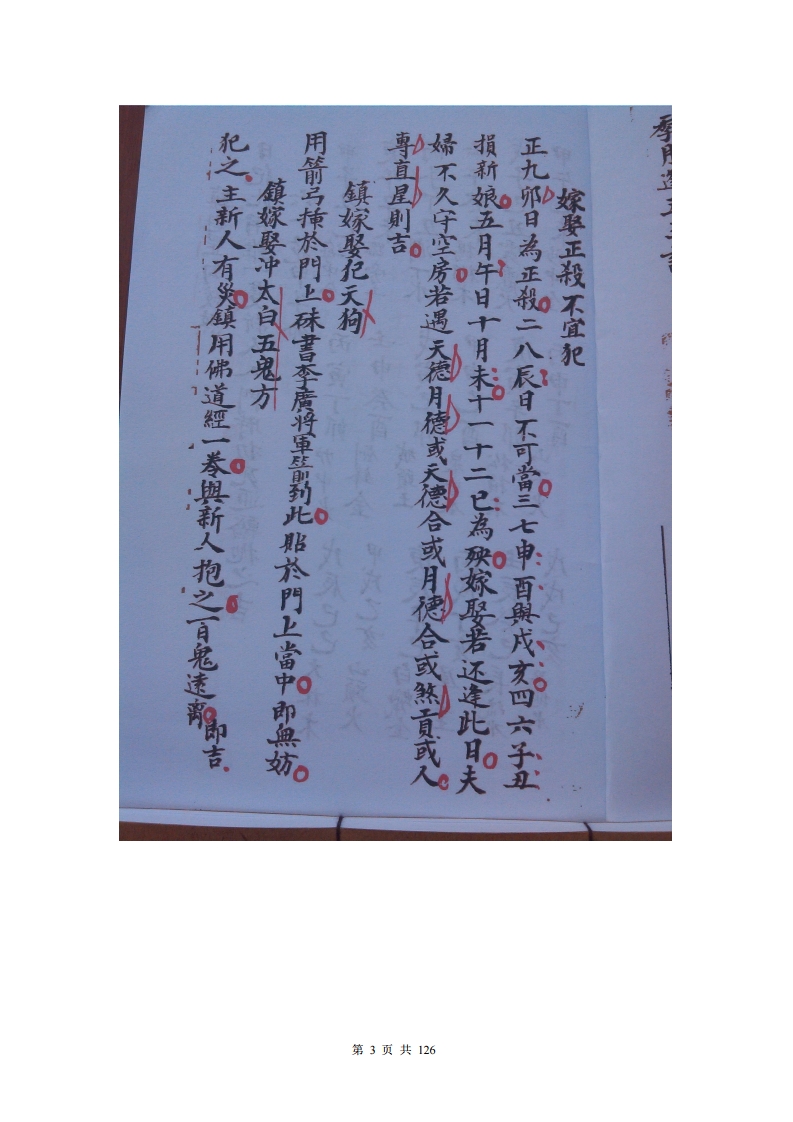 嫁娶正殺不宜犯
正九卯日為正殺二八辰日不可當三七申酉與戌亥四六子丑
損新娘五月午日十月未十一十二巳為殃嫁娶若还逢此日夫
婦不久守空房若遇天德月德或天德合或月德合或煞貢或人
專直星則吉
鎮嫁娶犯天狗
用箭弓掛於門上硃書李廣將軍箭到此貼於門上當中即無妨
鎮嫁娶冲太白五鬼方
犯之主新人有災鎮用佛道經一卷與新人抱之百鬼遠离即吉
第 3 页 共 126